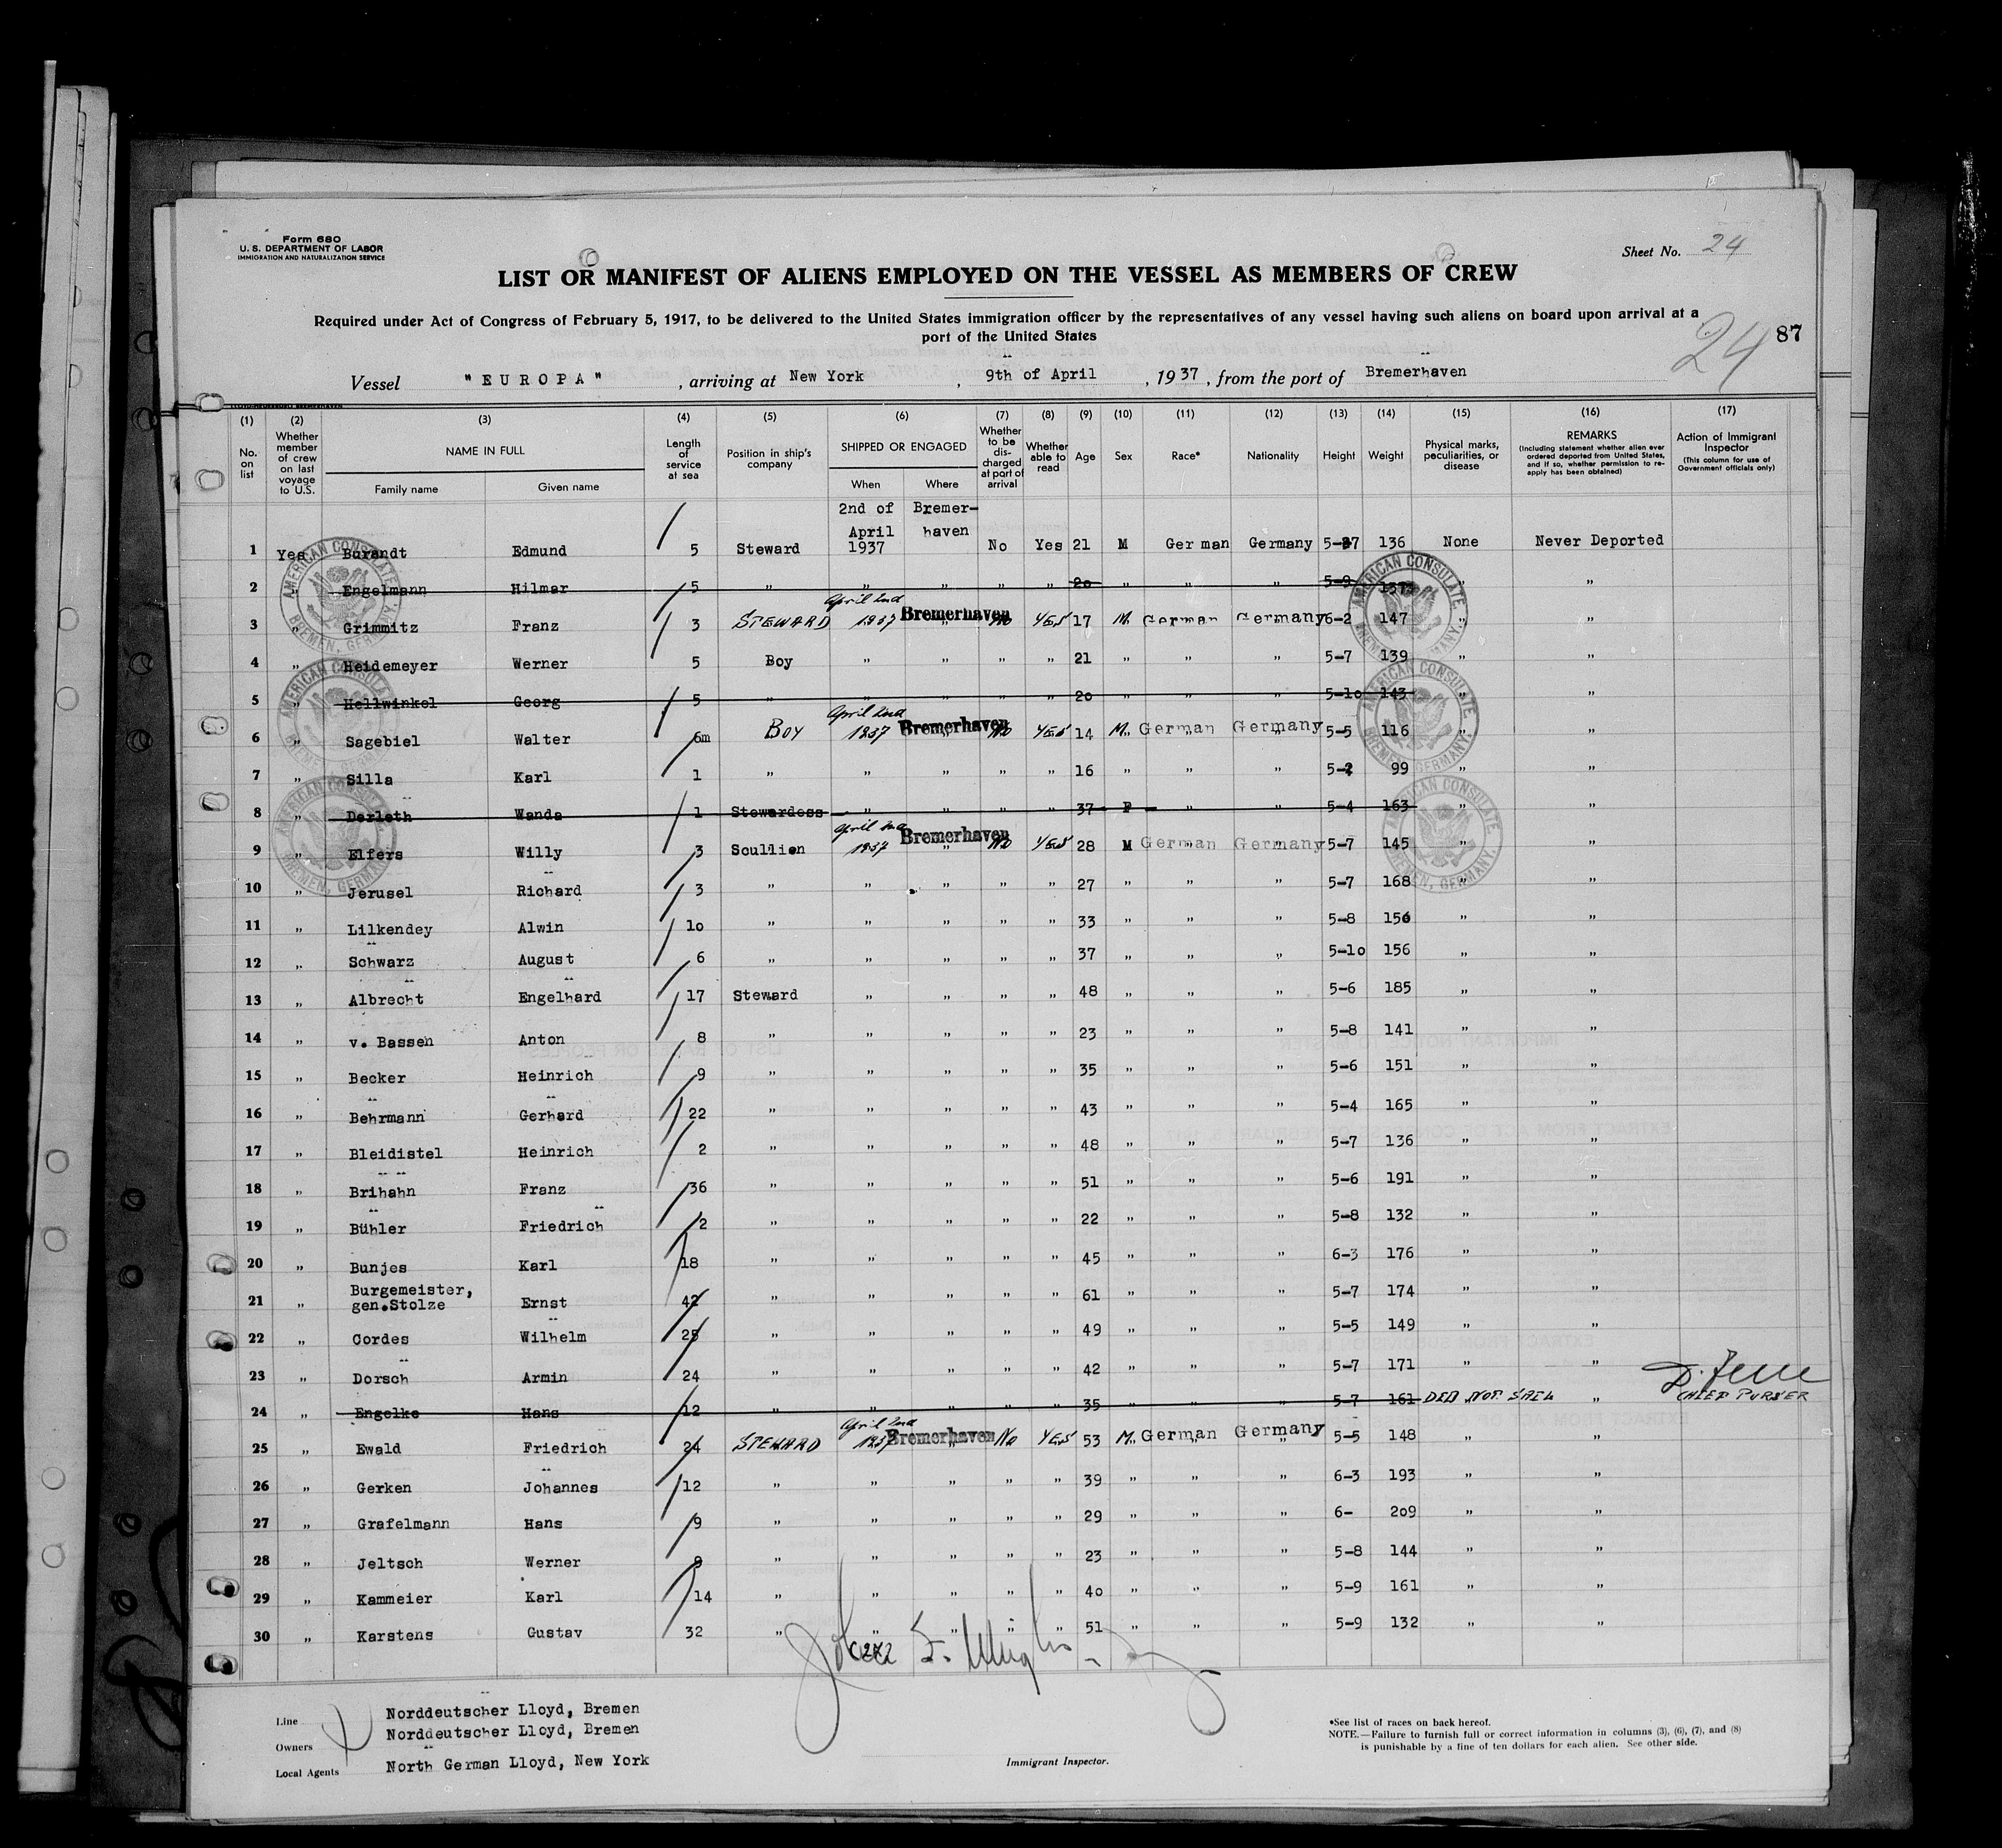 Form 680
U. S. DEPARTMENT OF LABOR
IMMIGRATION AND NATURALIZATION SERVICE
Sheet No. 24
LIST OR MANIFEST OF ALIENS EMPLOYED ON THE VESSEL AS MEMBERS OF CREW
Required under Act of Congress of February 5, 1917, to be delivered to the United States immigration officer by the representatives of any vessel having such aliens on board upon arrival at a
port of the United States
24 87
Vessel "EUROPA", arriving at New York, 9th of April, 1937, from the port of Bremerhaven
(1) (2) (3) (4) (5) (6) (7) (8) (9) (10) (11) (12) (13) (14) (15) (16) (17)
No. on list
Whether member of crew on last voyage to U.S.
NAME IN FULL
Family name Given name
Length of service at sea
Position in ship's company
SHIPPED OR ENGAGED
When Where
Whether to be discharged at port of arrival
Whether able to read
Age
Sex
Race*
Nationality
Height
Weight
Physical marks, peculiarities, or disease
REMARKS
(Including statement whether alien ever ordered deported from United States, and if so, whether permission to reapply has been obtained)
Action of Immigrant Inspector
(This column for use of Government officials only)
1 Yes Burandt Edmund 5 Steward 2nd of April 1937 Bremerhaven No Yes 21 M German Germany 5-7 136 None Never Deported
2 " Engelmann Hilmar 5 " " " " " 20 " " " 5-9 " "
3 " Grimmitz Franz 3 STEWARD April 2nd 1937 Bremerhaven No YES 17 M. German Germany 6-2 147 " "
4 " Heidemeyer Werner 5 Boy " " " " 21 " " " 5-7 139 " "
5 " Hellwinkel Georg 5 " " " " " 20 " " " 5-10 143 " "
6 " Sagebiel Walter 6m BOY April 2nd 1937 Bremerhaven No YES 14 M. German Germany 5-5 116 " "
7 " Silla Karl 1 " " " " " 16 " " " 5-2 99 " "
8 " Derleth Wanda 1 Stewardess " " " " 37 F " " 5-4 163 " "
9 " Elfers Willy 3 Scullion April 2nd 1937 Bremerhaven No YES 28 M German Germany 5-7 145 " "
10 " Jerusel Richard 3 " " " " " 27 " " " 5-7 168 " "
11 " Lilkendey Alwin 10 " " " " " 33 " " " 5-8 156 " "
12 " Schwarz August 6 " " " " " 37 " " " 5-10 156 " "
13 " Albrecht Engelhard 17 Steward " " " " 48 " " " 5-6 185 " "
14 " v. Bassen Anton 8 " " " " " 23 " " " 5-8 141 " "
15 " Becker Heinrich 9 " " " " " 35 " " " 5-6 151 " "
16 " Behrmann Gerhard 22 " " " " " 43 " " " 5-4 165 " "
17 " Bleidistel Heinrich 2 " " " " " 48 " " " 5-7 136 " "
18 " Brihahn Franz 36 " " " " " 51 " " " 5-6 191 " "
19 " Bühler Friedrich 2 " " " " " 22 " " " 5-8 132 " "
20 " Bunjes Karl 18 " " " " " 45 " " " 6-3 176 " "
21 " Burgemeister, gen.Stolze Ernst 42 " " " " " 61 " " " 5-7 174 " "
22 " Cordes Wilhelm 25 " " " " " 49 " " " 5-5 149 " "
23 " Dorsch Armin 24 " " " " " 42 " " " 5-7 171 " "
24 " Engelke Hans 12 " " " " " 35 " " " 5-7 161 DID NOT SAIL " CHIEF PURSER
25 " Ewald Friedrich 24 STEWARD April 2nd 1937 Bremerhaven No YES 53 M. German Germany 5-5 148 " "
26 " Gerken Johannes 12 " " " " " 39 " " " 6-3 193 " "
27 " Grafelmann Hans 9 " " " " " 29 " " " 6- 209 " "
28 " Jeltsch Werner 9 " " " " " 23 " " " 5-8 144 " "
29 " Kammeier Karl 14 " " " " " 40 " " " 5-9 161 " "
30 " Karstens Gustav 32 " " " " " 51 " " " 5-9 132 " "
AMERICAN CONSULATE, BREMEN, GERMANY.
AMERICAN CONSULATE, BREMEN, GERMANY.
AMERICAN CONSULATE, BREMEN, GERMANY.
AMERICAN CONSULATE, BREMEN, GERMANY.
AMERICAN CONSULATE, BREMEN, GERMANY.
AMERICAN CONSULATE, BREMEN, GERMANY.
Line Norddeutscher Lloyd, Bremen
Owners Norddeutscher Lloyd, Bremen
Local Agents North German Lloyd, New York
Immigrant Inspector.
*See list of races on back hereof.
NOTE.—Failure to furnish full or correct information in columns (3), (6), (7), and (8)
is punishable by a fine of ten dollars for each alien. See other side.